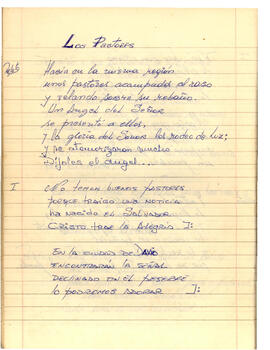 Los Pastores
Había en la misma región
unos pastores acampados al raso
y velando sobre su rebaño.
Un Angel del Señor
se presentó a ellos,
y la gloria del Señor los rodeo de luz;
y se atemorizaron mucho
Díjoles el angel...
I No teman buenos pastores
porque traigo una noticia
ha nacido el Salvador
Cristo trae la Alegría I:
En la ciudad de David
encontrarán la señal
reclinado en el pesebre
lo podremos adorar I: